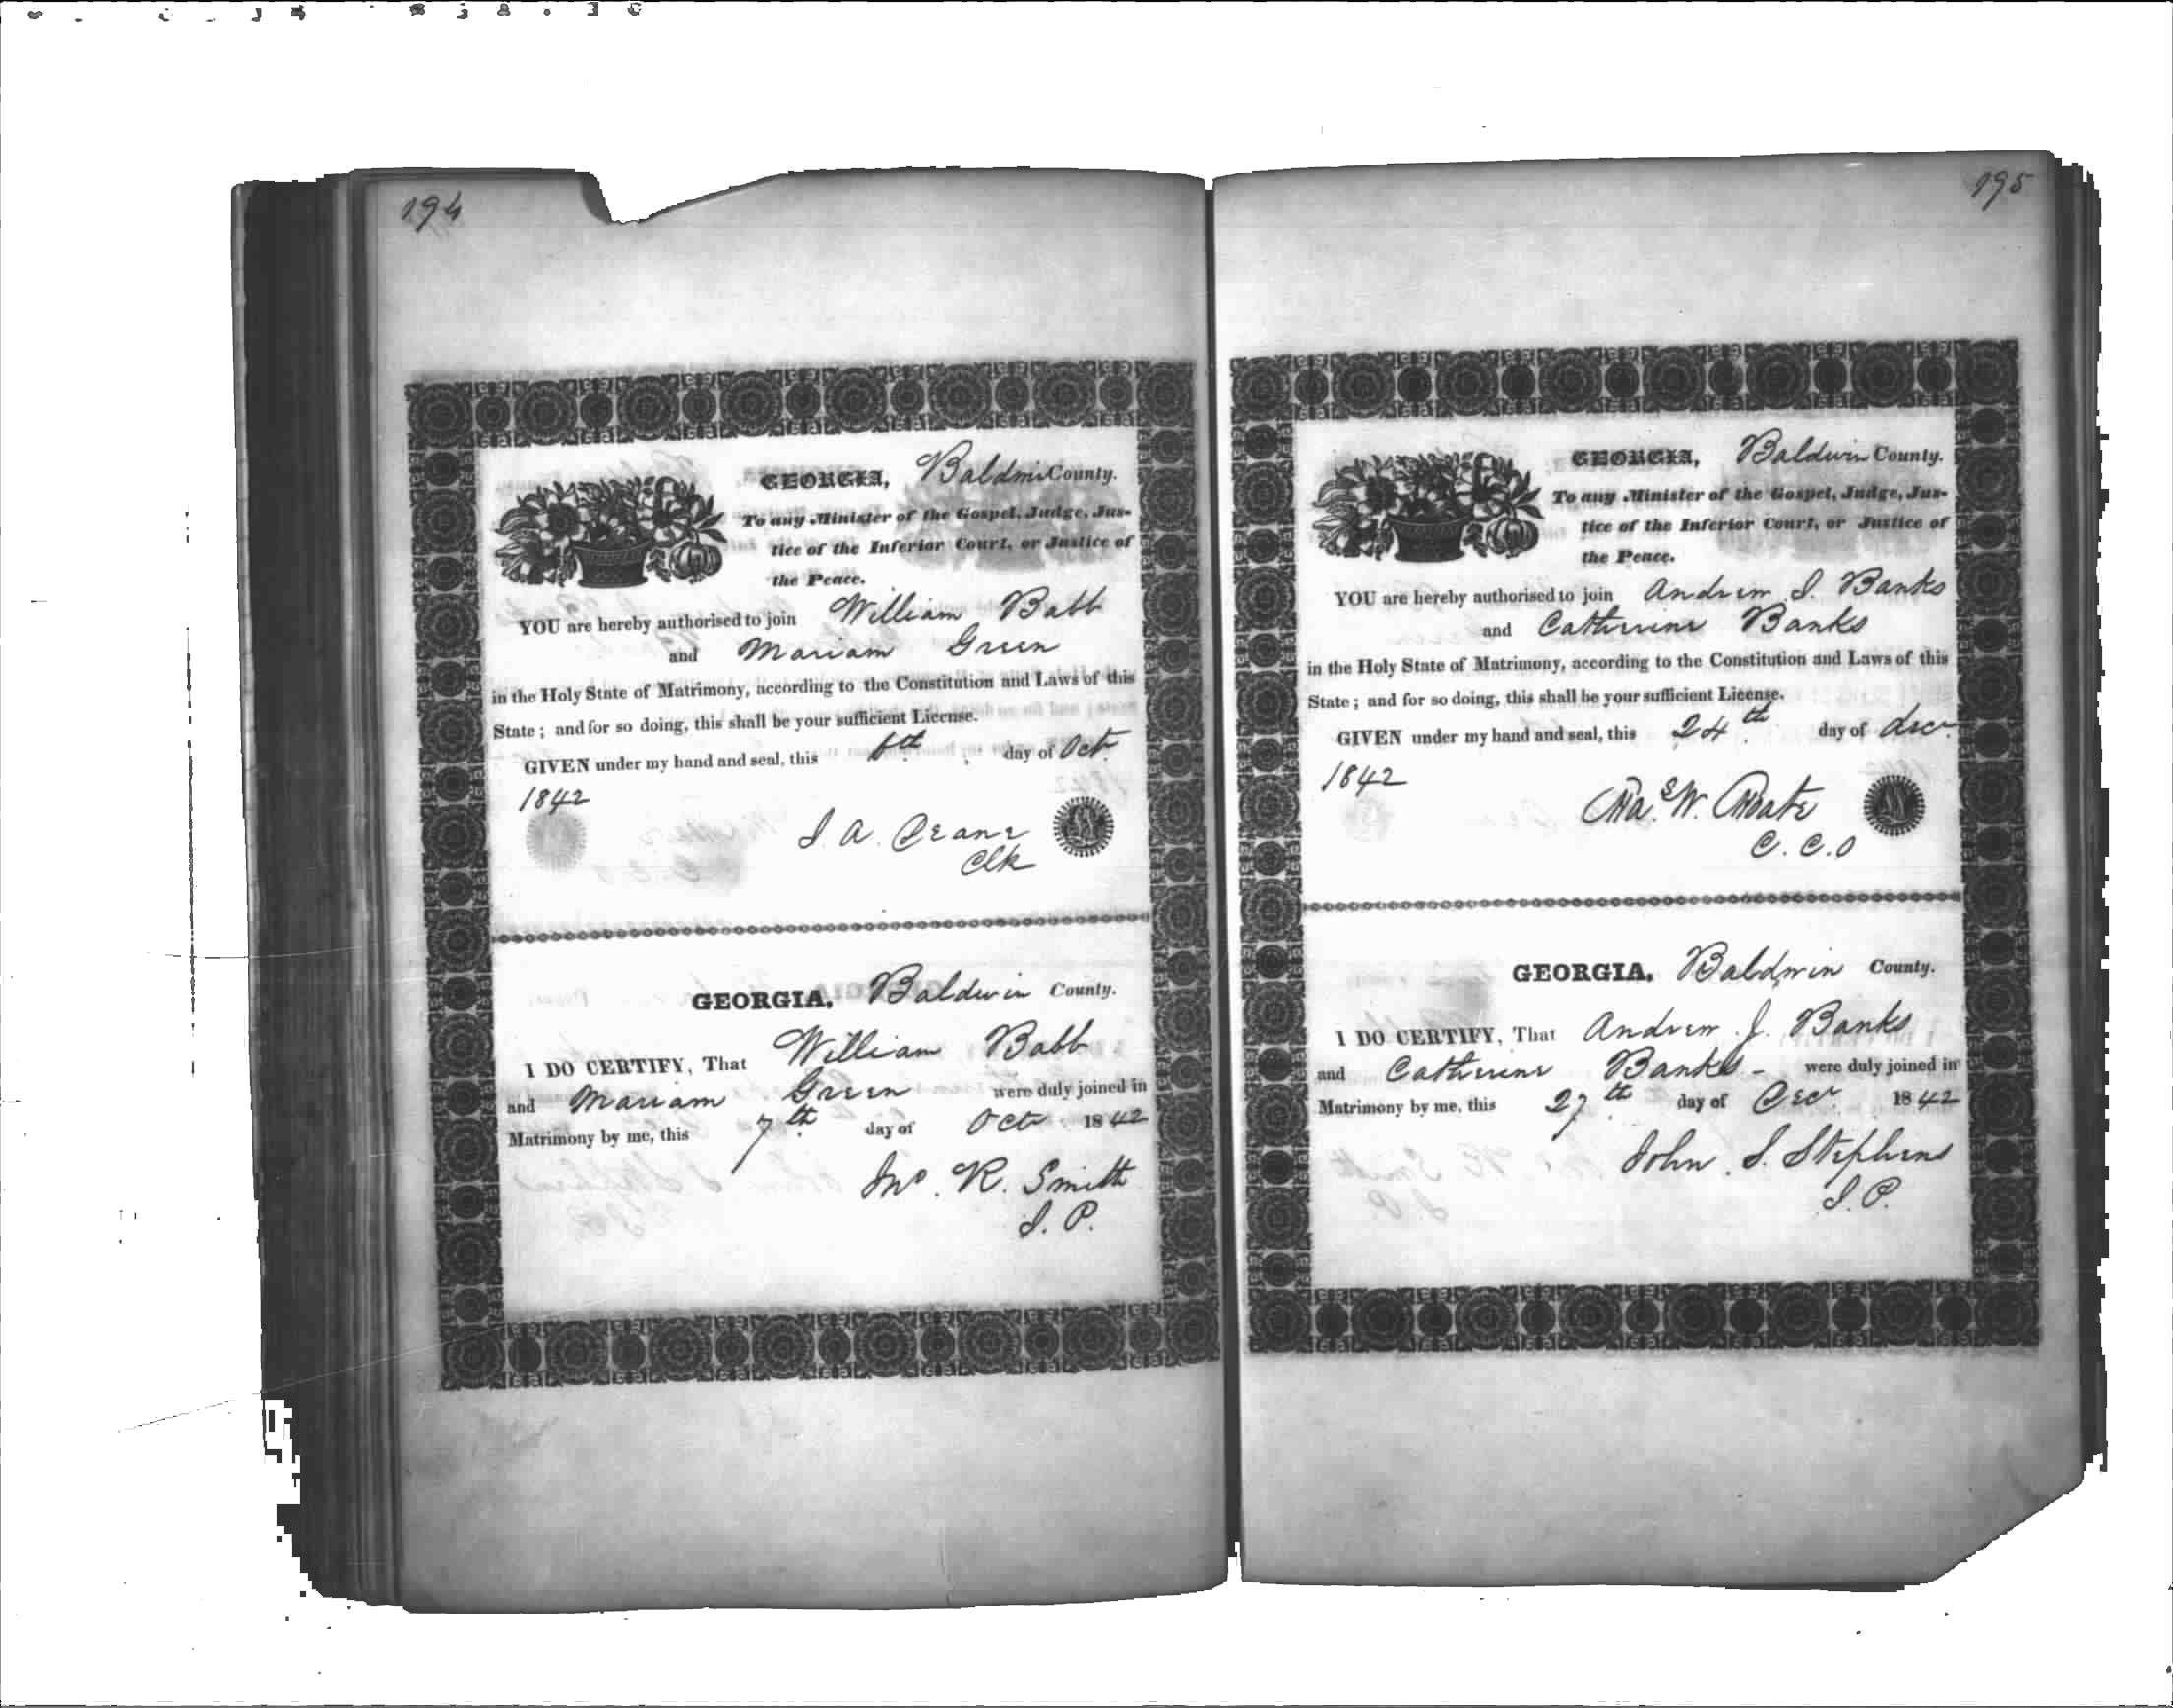 194
GEORGIA, Baldwin County.
To any Minister of the Gospel, Judge, Jus-
tice of the Inferior Court, or Justice of
the Peace.
YOU are hereby authorised to join William Babb
and Mariam Green
in the Holy State of Matrimony, according to the Constitution and Laws of this
State; and for so doing, this shall be your sufficient License.
GIVEN under my hand and seal, this 6th day of Oct.
1842
J. A. Crane
Clk
GEORGIA, Baldwin County.
I DO CERTIFY, That William Babb
and Mariam Green were duly joined in
Matrimony by me, this 7th day of Oct 1842
Jno. R. Smith
J. P.
195
GEORGIA, Baldwin County.
To any Minister of the Gospel, Judge, Jus-
tice of the Inferior Court, or Justice of
the Peace.
YOU are hereby authorised to join Andrew J. Banks
and Catherine Banks
in the Holy State of Matrimony, according to the Constitution and Laws of this
State; and for so doing, this shall be your sufficient License.
GIVEN under my hand and seal, this 24th day of Dec.
1842
Chas. W. Choate
C. C. O
GEORGIA, Baldwin County.
I DO CERTIFY, That Andrew J. Banks
and Catherine Banks - were duly joined in
Matrimony by me, this 27th day of Dec 1842
John S. Stephens
J. P.